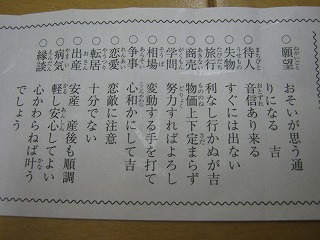 ○願望 おそいが思う通
りになる 吉
○待人 音信あり来る
○失物 すぐには出ない
○旅行 利なし行かぬが吉
○商売 物価上下定まらず
○学問 努力すればよろし
○相場 変動する手を打て
○争事 心和かにして吉
○恋愛 恋敵に注意
○転居 十分でない
○出産 安産 産後も順調
○病気 軽し安心してよい
○縁談 心かわらねば叶う
でしょう